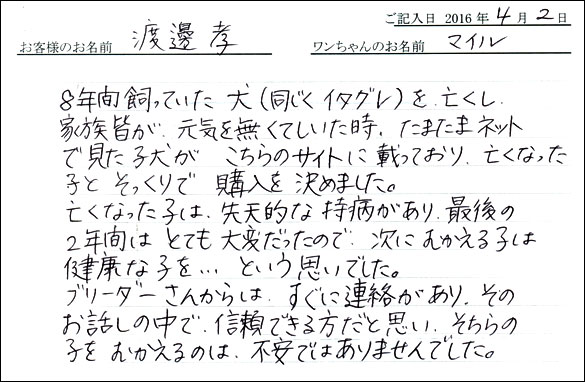 ご記入日 2016年4月2日
お客様のお名前 渡邊 孝 ワンちゃんのお名前 マイル
8年間飼っていた犬(同じくイタグレ)を亡くし、
家族皆が、元気を無くていた時、たまたまネット
で見た子犬が こちらのサイトに載っており、亡くなった
子と そっくりで 購入を決めました。
亡くなった子は、先天的な持病があり、最後の
2年間は とても大変だったので、次に むかえる子は
健康な子を… という思いでした。
ブリーダーさんからは、すぐに連絡があり、その
お話しの中で、信頼できる方だと思い、そちらの
子を むかえるのは、不安ではありませんでした。